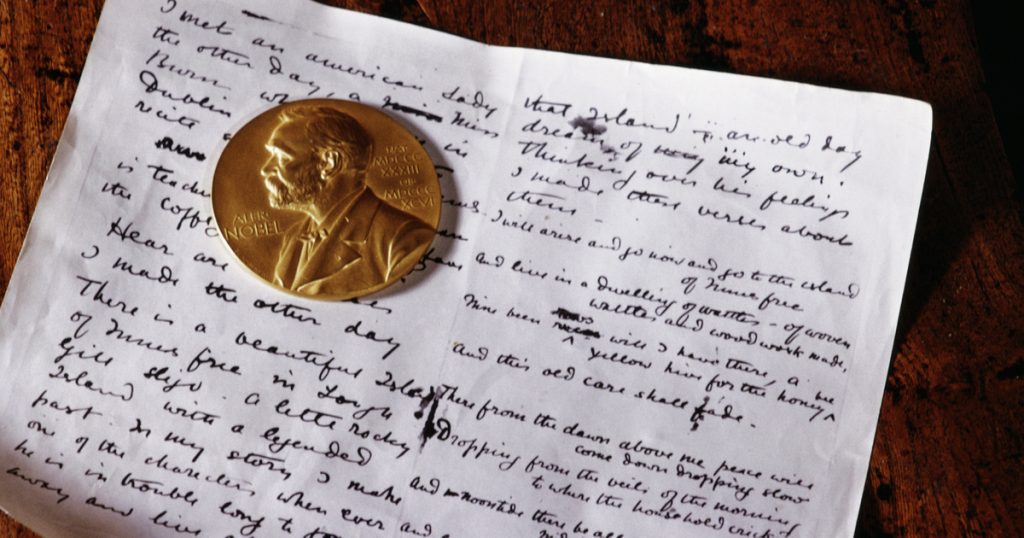 I met an american Lady
the other day, a Miss
Burn
Dublin in
recite
is teach
the coffe
Hear are
I made the other day
There is a beautiful Island
of Innis free in Lough
Gill Sligo. A little rocky
Island with a legended
past. In my story I make
one of the characters when ever
he is in trouble long to
away and live
and
ALFR·
NOBEL
NAT·
MDCCC
XXXIII
OB·
MDCCC
XCVI
that Island an old day
dream of my own.
Thinking over his feelings
I made these verses about
them -
I will arise and go now and go to the island
of Innis free
And live in a dwelling of wattles - of woven
wattles and wood work made,
Nine bean rows will I have there, a
yellow hive for the honey
And this old care shall fade.
There from the dawn above me peace will
come down dropping slow
Dropping from the veils of the morning
to where the household cricket
And noontide there be all